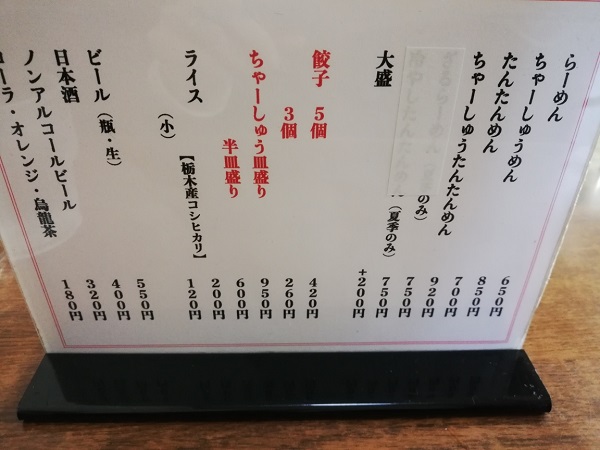 らーめん 650円
ちゃーしゅうめん 850円
たんたんめん 700円
ちゃーしゅうたんたんめん 920円
ざるらーめん（夏季のみ） 750円
冷やしたんたんめん（夏季のみ） 750円
大盛 +200円
餃子 5個 420円
3個 260円
ちゃーしゅう皿盛り 950円
半皿盛り 600円
ライス 200円
（小） 120円
【栃木産コシヒカリ】
ビール（瓶・生） 550円
日本酒 400円
ノンアルコールビール 320円
コーラ・オレンジ・烏龍茶 180円